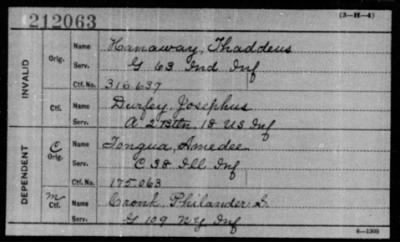 212063
(3—H—4)
INVALID
Orig. Name Hanaway, Thaddeus
Serv. G 63 Ind Inf
Ctf. No. 316637
Ctf. Name Durfey, Josephus
Serv. A 2 Battn. 18 US Inf
DEPENDENT
C Orig. Name Tongua, Amedee
Serv. C 38 Ill Inf
Ctf. No. 175.063
m Ctf. Name Cronk, Philander S.
Serv. G 109 NY Inf
6—1308